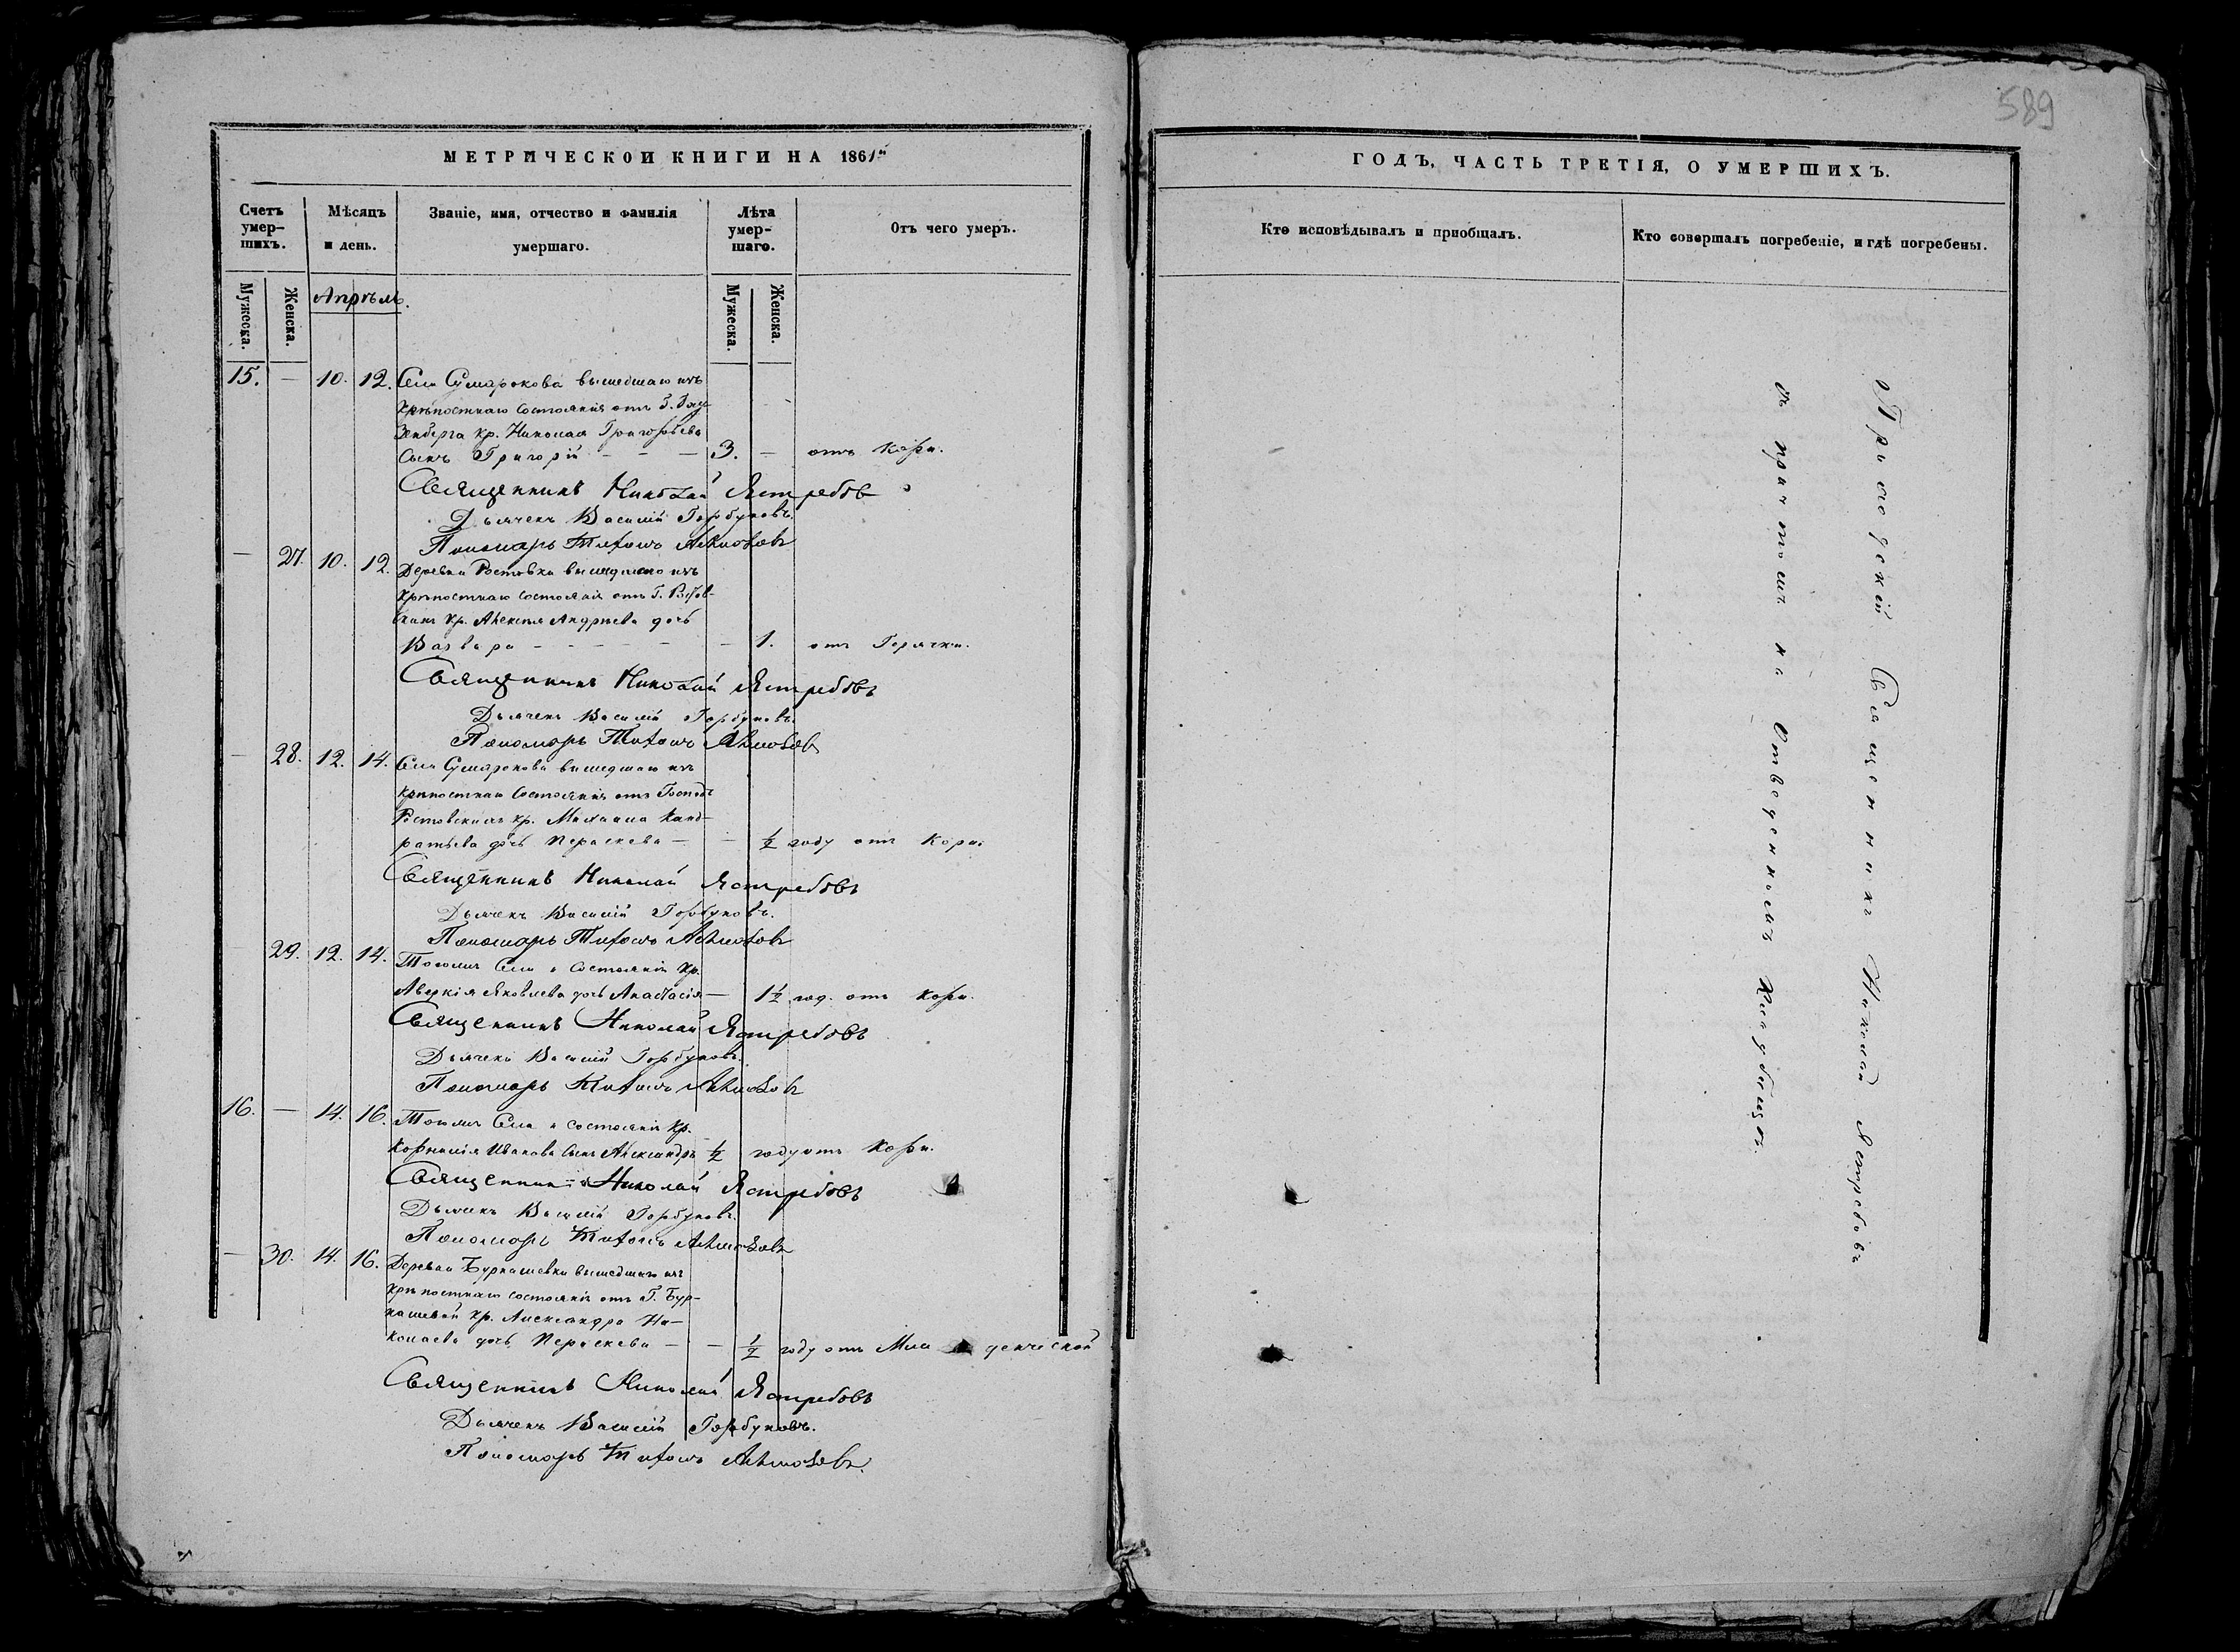 589
МЕТРИЧЕСКОЙ КНИГИ НА 1861й
ГОДЪ, ЧАСТЬ ТРЕТІЯ, О УМЕРШИХЪ.
Счетъ умер-
шихъ.
Мѣсяцъ
и день.
Званіе, имя, отчество и фамилія
умершаго.
Лѣта умер-
шаго.
Отъ чего умеръ.
Кто исповѣдывалъ и пріобщалъ.
Кто совершалъ погребеніе, и гдѣ погребены.
Мужеска. Женска. Апрѣль. Мужеска. Женска.
15. — 10. 12. Села Сумарокова вышедшаго изъ
крѣпостнаго состоянія отъ Г.
кр. Николая Григорьева
сынъ Григорій — — — 3. — отъ Кори.
Священникъ Николай Ястребовъ
Дьячекъ Василій Горбуновъ.
Пономарь
— 27. 10. 12. Деревни Ростовки вышедшаго изъ
крѣпостнаго состоянія отъ Г. Ростов-
скихъ кр. Алексѣя Андрѣева дочь
Варвара — — — — — — 1. отъ Горячки.
Священникъ Николай Ястребовъ
Дьячекъ Василій Горбуновъ.
Пономарь
— 28. 12. 14. Села Сумарокова вышедшаго изъ
крѣпостнаго состоянія отъ Господъ
Ростовскихъ кр. Михаила Конд-
ратьева дочь Параскева — — ½ году отъ Кори.
Священникъ Николай Ястребовъ
Дьячекъ Василій Горбуновъ.
Пономарь
29. 12. 14. Тогожъ Села и состоянія кр.
Аверкія Яковлева дочь Анастасія — 1½ год. отъ Кори.
Священникъ Николай Ястребовъ
Дьячекъ Василій Горбуновъ.
Пономарь
16. — 14. 16. Тогожъ Села и состоянія кр.
Корнилія Иванова сынъ Александръ ½ году отъ Кори.
Священникъ Николай Ястребовъ
Дьячекъ Василій Горбуновъ.
Пономарь
— 30. 14. 16. Деревни Бурнашевки вышедшаго изъ
крѣпостнаго состоянія отъ Г. Бур-
нашевой кр. Александра Ни-
колаева дочь Параскева — — ½ году отъ Младенческой
Священникъ Николай Ястребовъ
Дьячекъ Василій Горбуновъ.
Пономарь
Приходскій Священникъ Николай Ястребовъ
съ причтомъ на Отведенномъ Кладбищѣ.